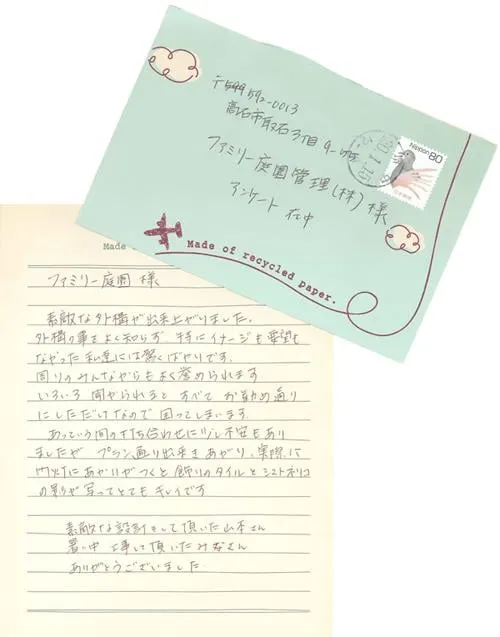 〒599 592-0013
高石市取石3丁目9-
ファミリー庭園管理(株)様
アンケート在中
Nippon 80
Made of recycled paper.
Made
ファミリー庭園 様
素敵な外構が出来上がりました。
外構の事をよく知らず 特にイメージも要望も
なかった私達には驚くばかりです。
周りのみんなからもよく誉められます
いろいろ聞かられますと すべて お勧め通り
にしただけなので困ってしまいます。
あっという間の打ち合わせに少し不安もあり
ましたが プラン通り出来あがり、実際に
門灯にあかりがつくと飾りのタイルとシマトネリコ
の影が写ってとてもキレイです
素敵な設計をして頂いた山本さん
暑い中 工事して頂いたみなさん
ありがとうございました